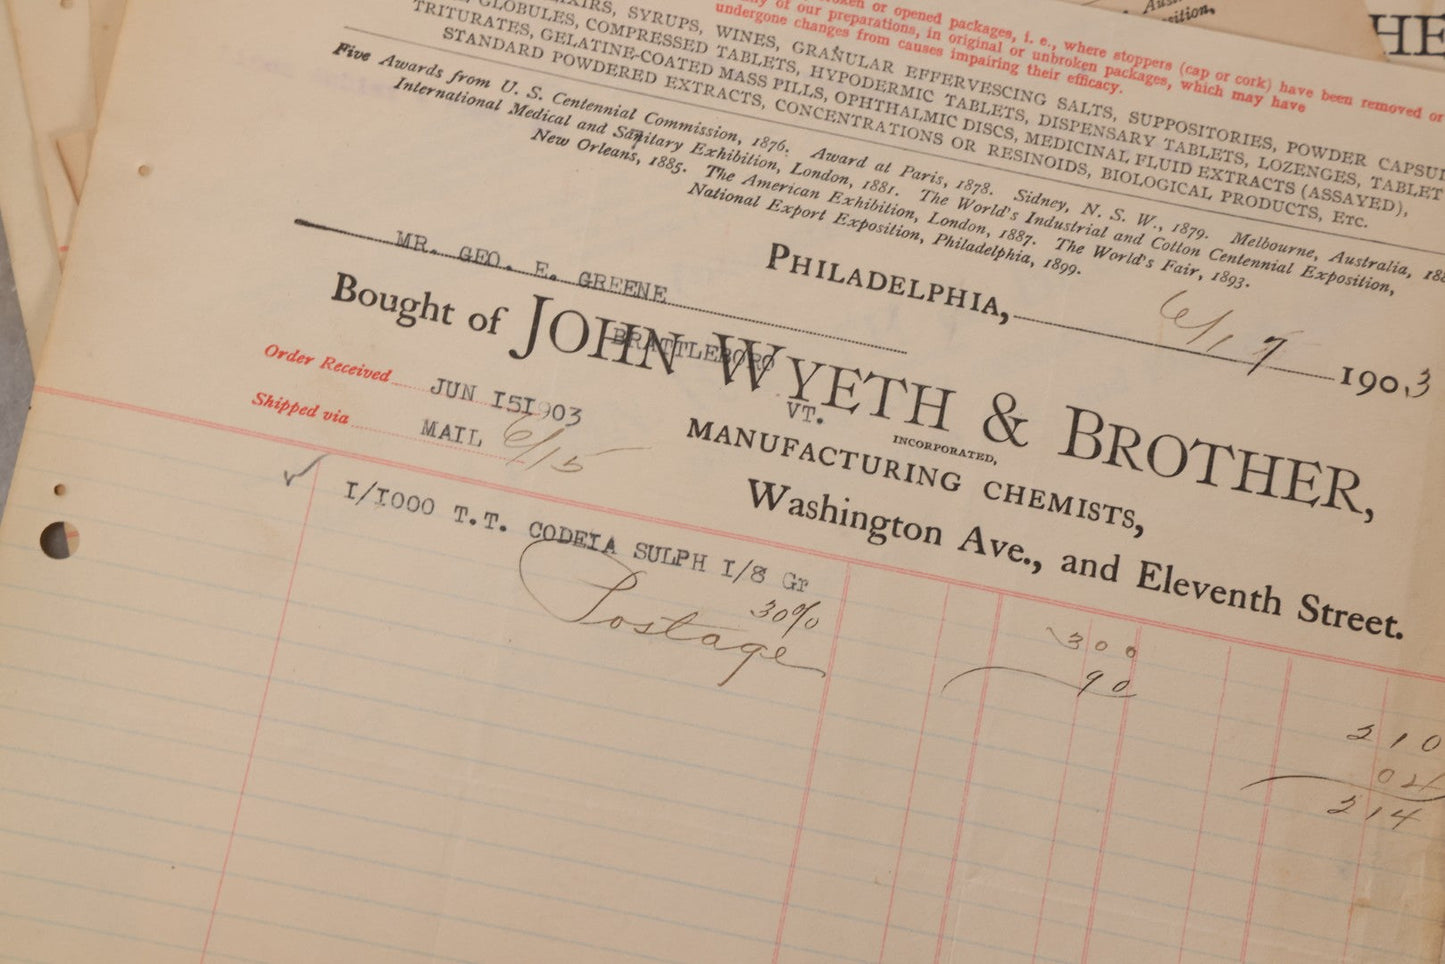 Au
sition,
HE
ken or opened packages, i. e., where stoppers (cap or cork) have been removed or
ny of our preparations, in original or unbroken packages, which may have
undergone changes from causes impairing their efficacy.
SYRUPS, WINES, GRANULAR EFFERVESCING SALTS, SUPPOSITORIES, POWDER CAPSUL
GLOBULES, COMPRESSED TABLETS, HYPODERMIC TABLETS, DISPENSARY TABLETS, LOZENGES, TABLET
TRITURATES, GELATINE-COATED MASS PILLS, OPHTHALMIC DISCS, MEDICINAL FLUID EXTRACTS (ASSAYED),
STANDARD POWDERED EXTRACTS, CONCENTRATIONS OR RESINOIDS, BIOLOGICAL PRODUCTS, ETC.
Five Awards from U. S. Centennial Commission, 1876. Award at Paris, 1878. Sidney, N. S. W., 1879. Melbourne, Australia, 188
International Medical and Sanitary Exhibition, London, 1881. The World's Industrial and Cotton Centennial Exposition,
New Orleans, 1885. The American Exhibition, London, 1887. The World's Fair, 1893.
National Export Exposition, Philadelphia, 1899.
PHILADELPHIA, 6/17 1903
MR. GEO. E. GREENE
BRATTLEBORO
VT.
Bought of JOHN WYETH & BROTHER,
INCORPORATED,
MANUFACTURING CHEMISTS,
Washington Ave., and Eleventh Street.
Order Received JUN 151903
Shipped via MAIL 6/15
1/1000 T.T. CODEIA SULPH 1/8 Gr
300
30%
90
210
Postage
04
214